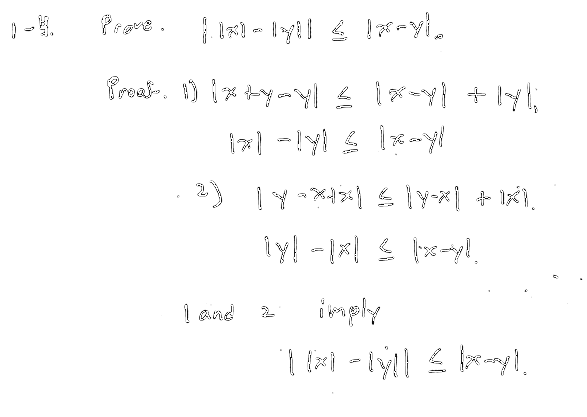 1-4. Prove. | |x| - |y| | ≤ |x-y|.
Proof. 1) |x+y-y| ≤ |x-y| + |y|;
|x| - |y| ≤ |x-y|
2) |y-x+x| ≤ |y-x| + |x|.
|y| - |x| ≤ |x-y|.
1 and 2 imply
| |x| - |y| | ≤ |x-y|.